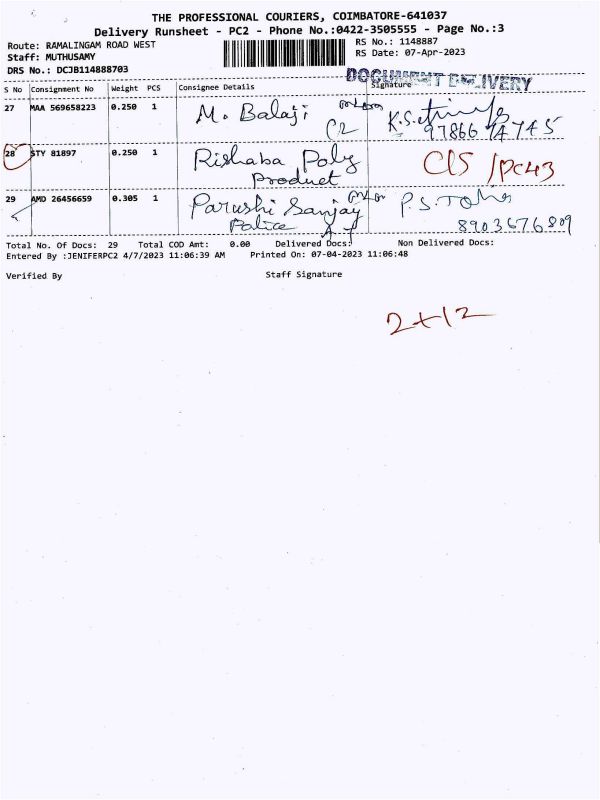 THE PROFESSIONAL COURIERS, COIMBATORE-641037
Delivery Runsheet - PC2 - Phone No.:0422-3505555 - Page No.:3
Route: RAMALINGAM ROAD WEST
RS No.: 1148887
Staff: MUTHUSAMY
RS Date: 07-Apr-2023
DRS No.: DCJB114888703
DOCUMENT DELIVERY
S No Consignment No Weight PCS Consignee Details Signature
27 MAA 569658223 0.250 1 M. Balaji
C2 97866 74745
28 STY 81897 0.250 1 Rishaba Poly C15 /PC43
Product
29 AMD 26456659 0.305 1 Parushi Sanjay
8903676809
Total No. Of Docs: 29 Total COD Amt: 0.00 Delivered Docs: Non Delivered Docs:
Entered By :JENIFERPC2 4/7/2023 11:06:39 AM Printed On: 07-04-2023 11:06:48
Verified By Staff Signature
2+12